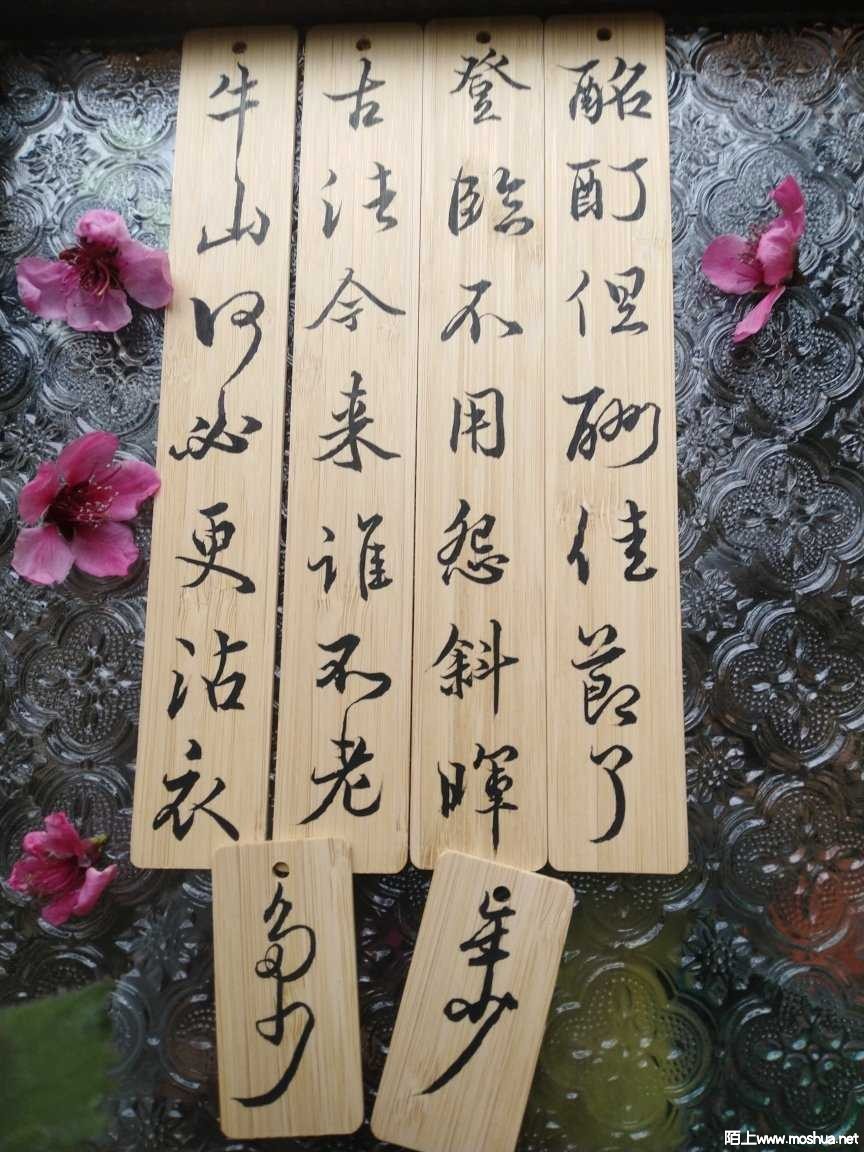 酩酊但酬佳節了
登臨不用怨斜暉
古往今来谁不老
牛山何必更沾衣
年少
多少
陌上www.moshua.net